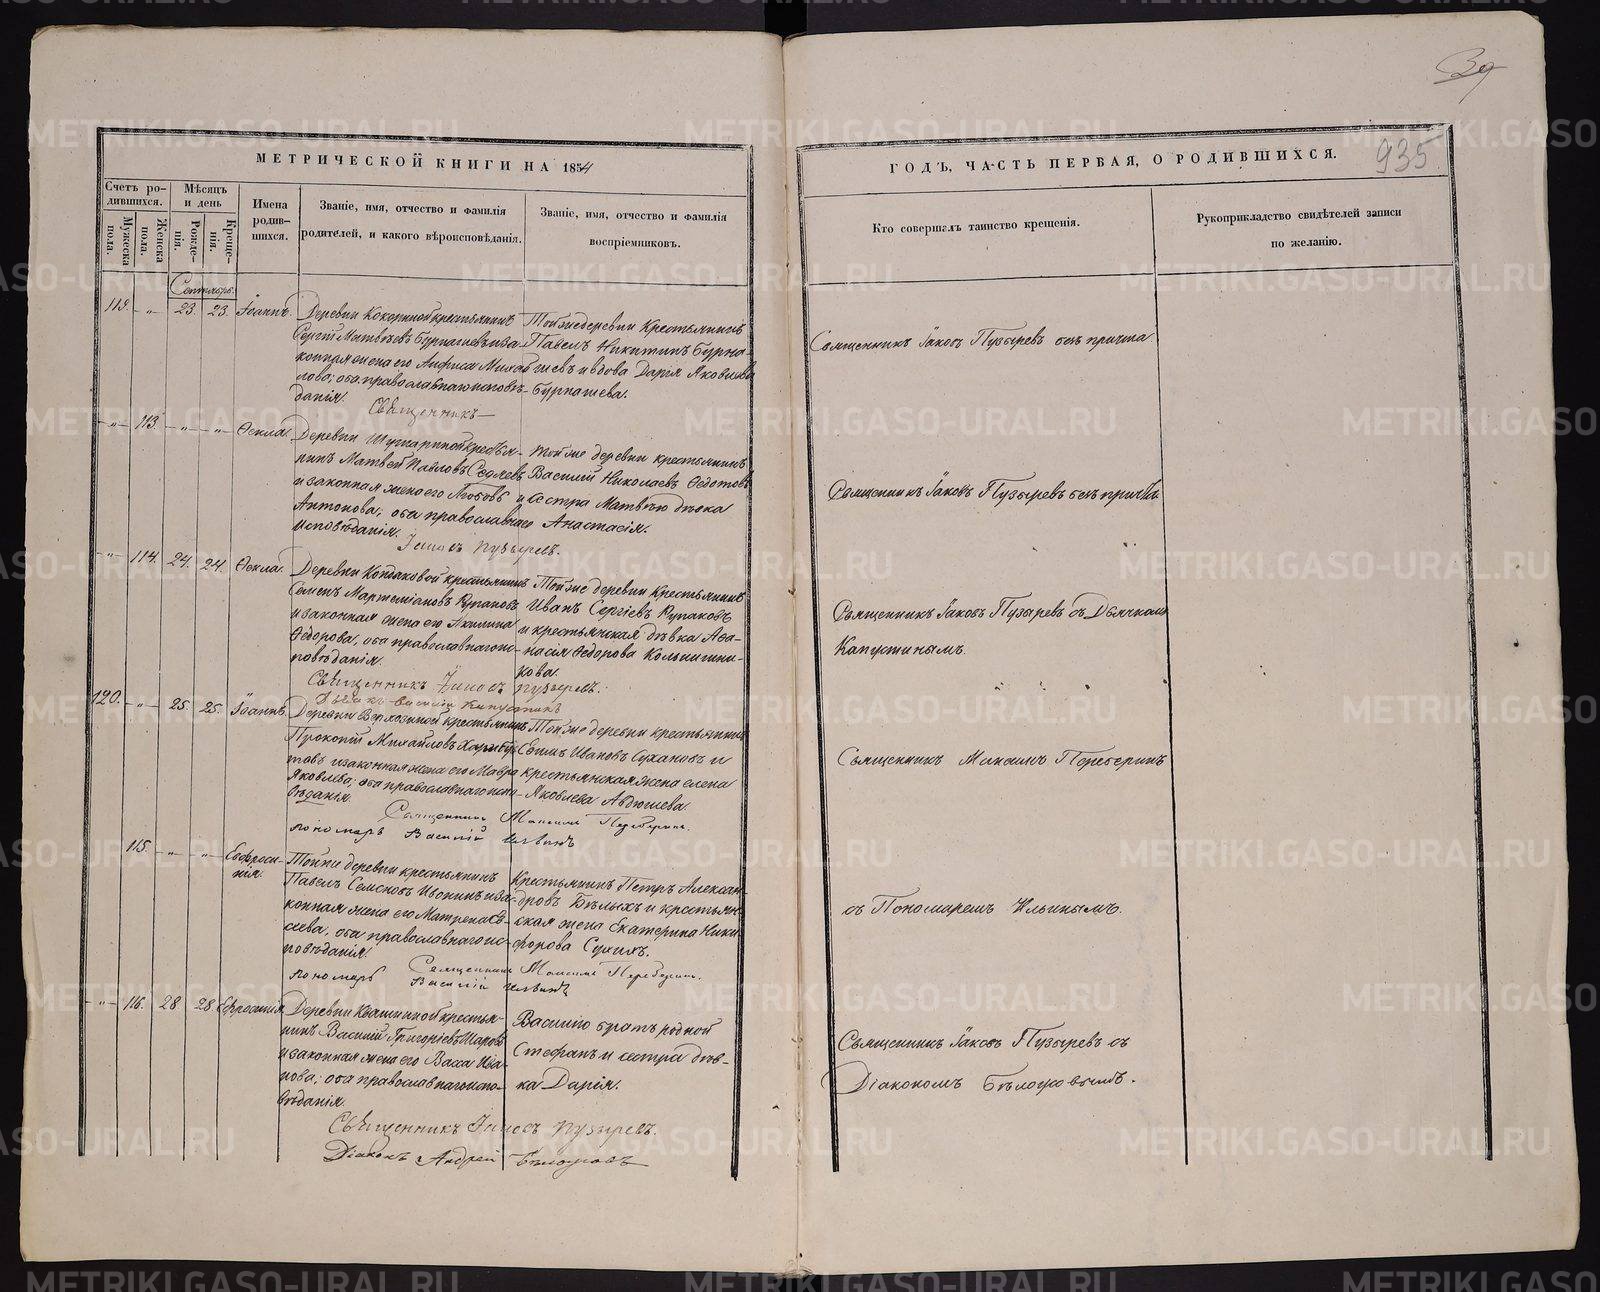 39
935
МЕТРИЧЕСКОЙ КНИГИ НА 1854
ГОДЪ, ЧАСТЬ ПЕРВАЯ, О РОДИВШИХСЯ.
Счетъ родившихся.
Мужеска пола.
Женска пола.
Мѣсяцъ и день
Рожденія.
Крещенія.
Имена родившихся.
Званіе, имя, отчество и фамилія родителей, и какого вѣроисповѣданія.
Званіе, имя, отчество и фамилія воспріемниковъ.
Кто совершалъ таинство крещенія.
Рукоприкладство свидѣтелей записи по желанію.
Сентябрь.
119. 23. 23. Іоаннъ.
крестьянинъ
Сергій Матвѣевъ
конная жена его Анфиса Михай
лова; оба православнаго исповѣ-
данія.
Тойже деревни Крестьянинъ
Павелъ Никитинъ Бурна-
шевъ и вдова Дарія Яковлева
Бурнашева.
Священникъ Іаковъ Пузыревъ безъ причта
Священникъ
113. Ѳекла.
Деревни
нинъ Матвей Павловъ
и законная жена его Любовь
Антонова; оба православнаго
исповѣданія.
Тойже деревни крестьянинъ
Василій Николаевъ Ѳедотовъ
и сестра Матвѣю дѣвка
Анастасія.
Священникъ Іаковъ Пузыревъ безъ причта
Іаковъ Пузыревъ.
114. 24. 24. Ѳекла.
Деревни крестьянинъ
Семенъ
и законная жена его Акилина
Ѳедорова, оба православнаго ис-
повѣданія.
Тойже деревни Крестьянинъ
Иванъ Сергіевъ
и крестьянская дѣвка Аѳа-
насія Ѳедорова
кова.
Священникъ Іаковъ Пузыревъ съ Дьячкомъ
Капустинымъ.
Священникъ Іаковъ Пузыревъ.
Дьячекъ Василій Капустинъ
120. 25. 25. Іоаннъ.
Деревни крестьянинъ
Прокопій Михайловъ
и законная жена его Мавра
Яковлева; оба православнаго испо-
вѣданія.
Тойже деревни крестьянинъ
Ефимъ Ивановъ Сухановъ и
крестьянская жена Елена
Яковлева Авдюшева.
Священникъ Максимъ Переберинъ
Священникъ Максимъ Переберинъ.
пономарь Василій Ильинъ
115. Евфроси-
нія.
Тойже деревни крестьянинъ
Павелъ Семеновъ и за-
конная жена его Матрена
сеева, оба православнаго ис-
повѣданія.
Крестьянинъ Петръ Алексан-
дровъ Бѣлыхъ и крестьян-
ская жена Екатерина Ники-
форова Сухихъ.
съ Пономаремъ Ильинымъ.
Священникъ Максимъ Переберинъ.
пономарь Василій Ильинъ
116. 28. 28. Ефросинія.
Деревни Квашниной крестья-
нинъ Василій Григорьевъ
и законная жена его Васса Ива-
нова; оба православнаго испо-
вѣданія.
Василію братъ родной
Стефанъ и сестра дѣв-
ка Дарія.
Священникъ Іаковъ Пузыревъ съ
Діакономъ
Священникъ Іаковъ Пузыревъ.
Діаконъ Андрей
METRIKI.GASO-URAL.RU